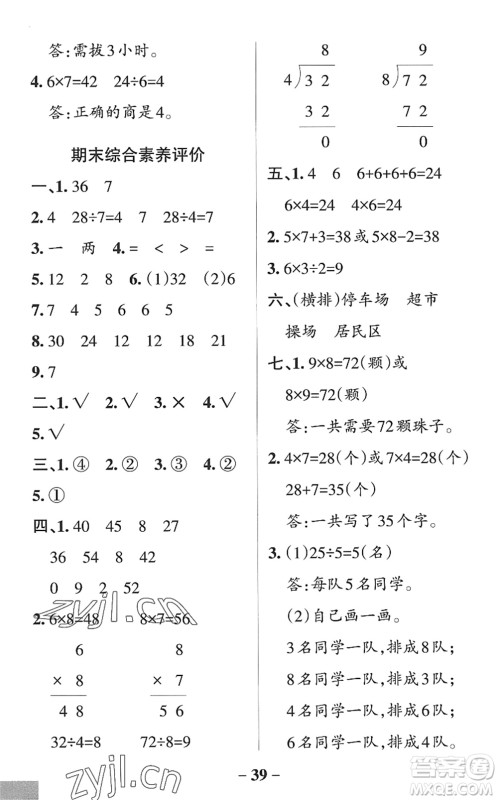 答:需拔3小时。
4. 6×7=42 24÷6=4
答:正确的商是4。
期末综合素养评价
一、1. 36 7
2. 4 28÷7=4 28÷4=7
3. 一 两 4. > < > =
5. 12 2 8 6. (1)32 (2)6
7. 7 4 5 6 6 5
8. 30 24 12 20 24
9. 7
二、1. √ 2. √ 3. × 4. √
5. √
三、1. ④ 2. ② 3. ③ 4. ②
5. ①
四、1. 40 45 8 27
36 54 8
0 9 2 52
2. 6×8=48 8×7=56
6 8
× 8 × 7
4 8 5 6
32÷4=8 72÷8=9
zyjl.cn
zyjl.cn
8 9
4 3 2 8 7 2
3 2 7 2
0 0
五、1. 4 6 6+6+6+6=24
6×4=24 4×6=24
2. 5×7+3=38或5×8-2=38
3. 6×3÷2=9
六、(横排)停车场 超市
操场 居民区
七、1. 9×8=72(颗)或
8×9=72(颗)
答:一共需要72颗珠子。
2. 4×7=28(个)或7×4=28(个)
28+7=35(个)
答:一共写了35个字。
3. (1)25÷5=5(名)
答:每队5名同学。
(2)自己画一画。
3名同学一队,排成8队;
8名同学一队,排成3队;
4名同学一队,排成6队;
6名同学一队,排成4队。
- 39 -
答案圈
MXQE.COM